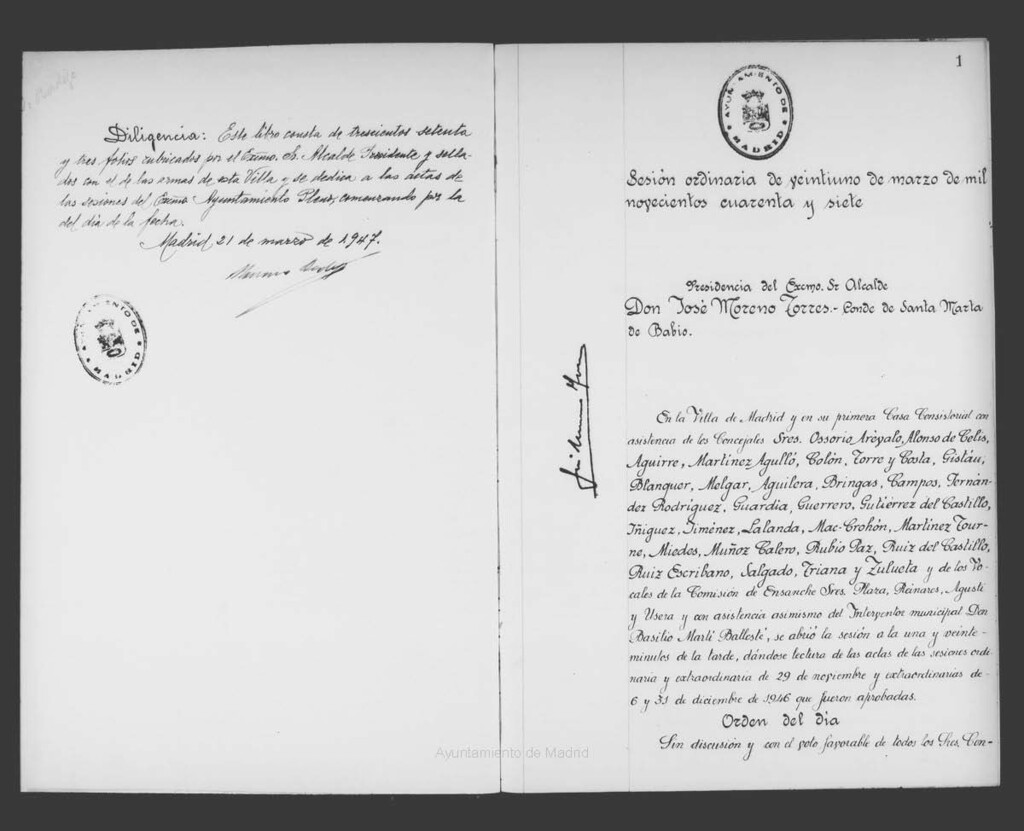 Diligencia: Este libro consta de trescientos setenta
y tres folios rubricados por el Excmo. Sr. Alcalde Presidente y sella-
dos con el de las armas de esta Villa y se dedica a las actas de
las sesiones del Excmo Ayuntamiento Pleno, comenzando por la
del día de la fecha.
Madrid 21 de marzo de 1.947.
AYUNTAMIENTO DE
MADRID
1
AYUNTAMIENTO DE
MADRID
Sesión ordinaria de veintiuno de marzo de mil
novecientos cuarenta y siete
Presidencia del Excmo. Sr Alcalde
Don José Moreno Torres.- Conde de Santa Marta
de Babio.
En la Villa de Madrid y en su primera Casa Consistorial con
asistencia de los Concejales Sres. Ossorio Arévalo, Alonso de Celis,
Aguirre, Martínez Agulló, Colón, Torre y Costa, Gistáu,
Blanquer, Melgar, Aguilera, Bringas, Campos, Fernán-
dez Rodríguez, Guardia, Guerrero, Gutiérrez del Castillo,
Iñiguez, Jiménez, Lalanda, Mac-Crohón, Martínez Tour-
ne, Miedes, Muñoz Calero, Rubio Paz, Ruiz del Castillo,
Ruiz Escribano, Salgado, Triana y Zulueta y de los Vo-
cales de la Comisión de Ensanche Sres. Plaza, Reinares, Agustí
y Usera y con asistencia asimismo del Interventor municipal Don
Basilio Martí Ballesté, se abrió la sesión a la una y veinte-
minutos de la tarde, dándose lectura de las actas de las sesiones ordi-
naria y extraordinaria de 29 de noviembre y extraordinarias de-
6 y 31 de diciembre de 1946 que fueron aprobadas.
Orden del día
Sin discusión y con el voto favorable de todos los Sres. Con-
Ayuntamiento de Madrid